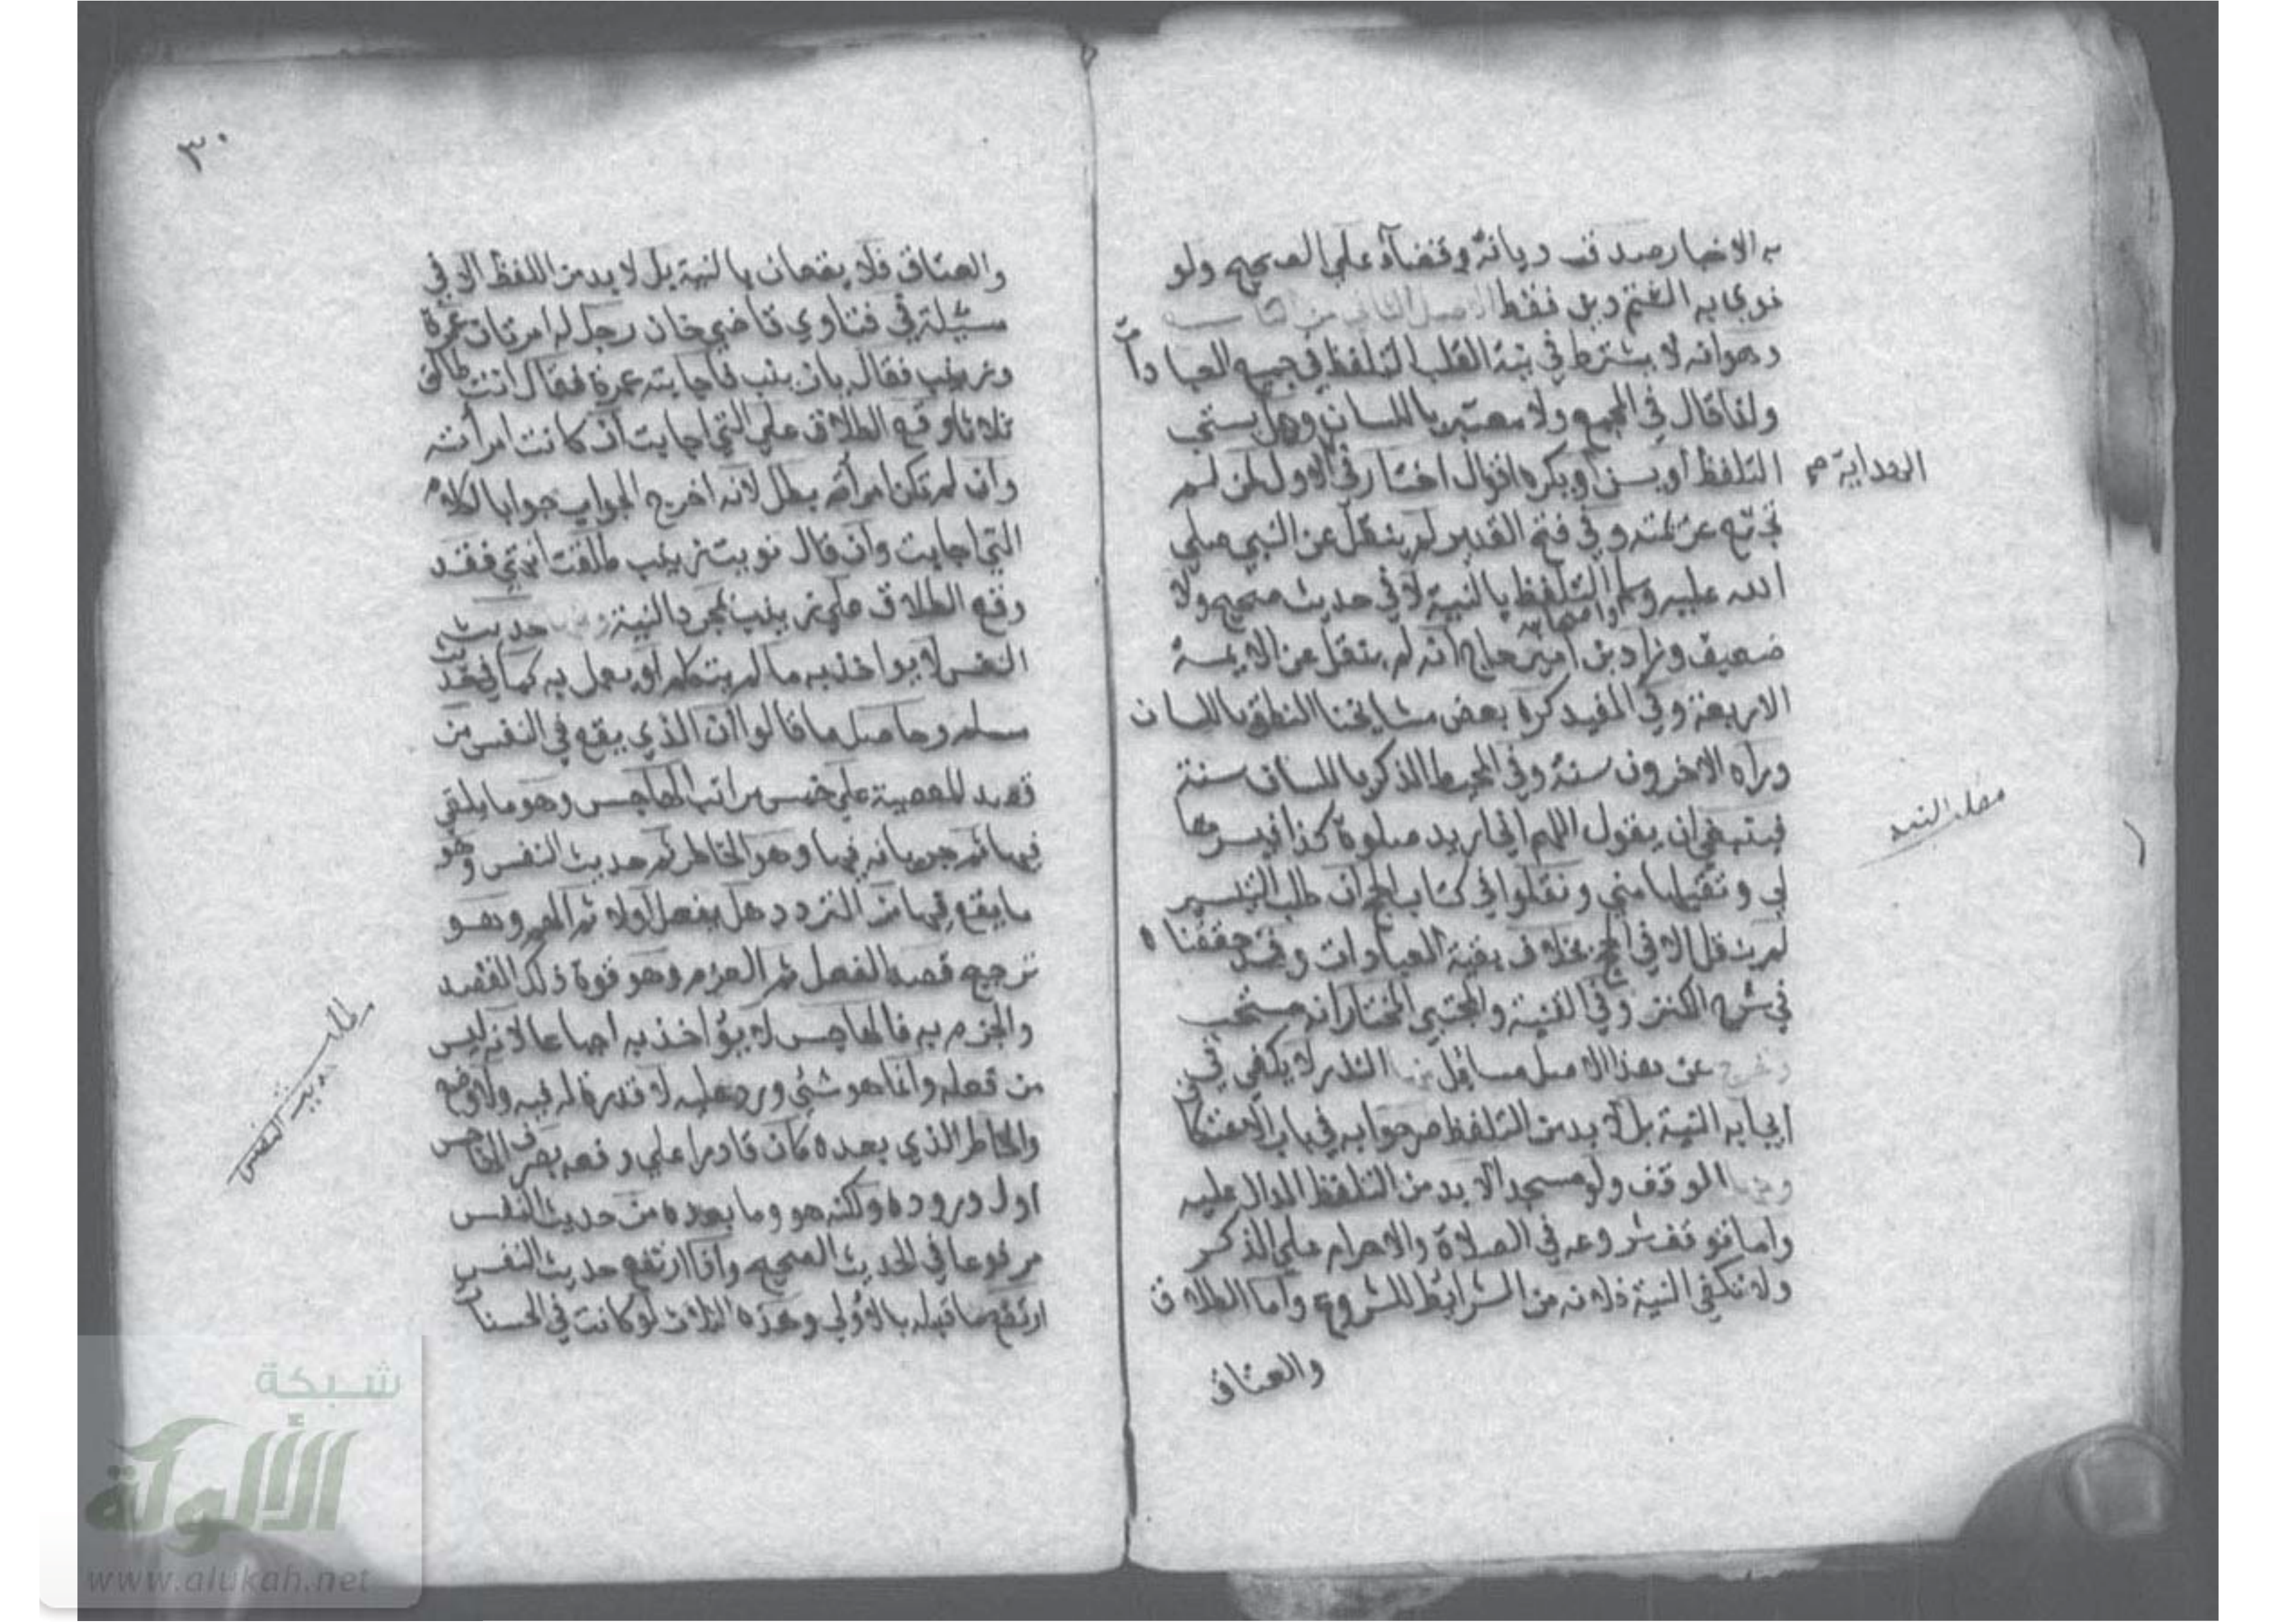 به الاخبار صدق ديانة وقضآء علي الصحيح ولو
نوي به الغير دين فقط الاصل الثاني من التاسع
وهوانه لا يشترط في نية القلب التلفظ في جميع العبادات
ولذا قال في المجمع ولا معتبر باللسان وهل يستحب
التلفظ او يسن او يكره اقوال اختار في الاول لمن لم
الهداية صح
تجتمع عزيمته وفي فتح القدير لم ينقل عن النبي صلي
الله عليه وسلم واصحابه التلفظ بالنية لا في حديث صحيح ولا
ضعيف وزاد بن امير حاج انه لم ينقل عن الايمة
الاربعة وفي المفيد كره بعض مشايخنا النطق باللسان
وراه الاخرون سنة وفي المحيط الذكر باللسان سنة
فينبغي ان يقول اللهم اني اريد صلوة كذا فيسرها
لي وتقبلها مني ونقلوا في كتاب الحج ان طلب التيسير
لم ينقل الا في الحج بخلاف بقية العبادات وقد حققناه
في شرح الكنز وفي القنية والمجتبي المختار انه مستحب
وخرج عن هذا الاصل مسايل منها النذر لا يكفي في
ايجابه النية بل لا بد من التلفظ صرحوا به في باب الاعتكا
ومنها الوقف ولو مسجدا لا بد من التلفظ الدال عليه
واما توقف شروعه في الصلاة والاحرام علي الذكر
ولا تكفي النية فلانه من الشرايط للشروع واما الطلاق
والعتاق
٣٠
والعتاق فلا يقعان بالنية بل لا بد من اللفظ الا في
مسئلة في فتاوي قاضي خان رجل له امرتان عمرة
وزينب فقال يا زينب فاجابته عمرة فقال انت طالق
ثلاثا وقع الطلاق علي التي اجابت ان كانت امرأته
وان لم تكن امرأته بطل لانه اخرج الجواب جوابا لكلام
التي اجابت وان قال نويت زينب طلقت زينب فقد
وقع الطلاق علي زينب بمجرد النية ومنها حديث
النفس لا يواخذ به ما لم يتكلم او يعمل به كما في حديث
مسلم وحاصل ما قالوا ان الذي يقع في النفس من
قصد المعصية علي خمس مراتب الهاجس وهو ما يلقي
فيها ثم جريانه فيها وهو الخاطر ثم حديث النفس وهو
ما يقع فيها من التردد هل يفعل اولا ثم الهم وهو
ترجيح قصد الفعل ثم العزم وهو قوة ذلك القصد
والجزم به فالهاجس لا يؤاخذ به اجماعا لانه ليس
من فعله وانما هو شئ ورد عليه لا قدرة له فيه ولا صنع
والخاطر الذي بعده كان قادرا علي دفعه بصرف الهاجس
اول وروده ولكنه هو وما بعده من حديث النفس
مرفوعا في الحديث الصحيح واذا ارتفع حديث النفس
ارتفع ما قبله بالاولي وهذه الثلاث لو كانت في الحسنات
مطلب
حديث النفس
شبكة
الألوكة
www.alukah.net